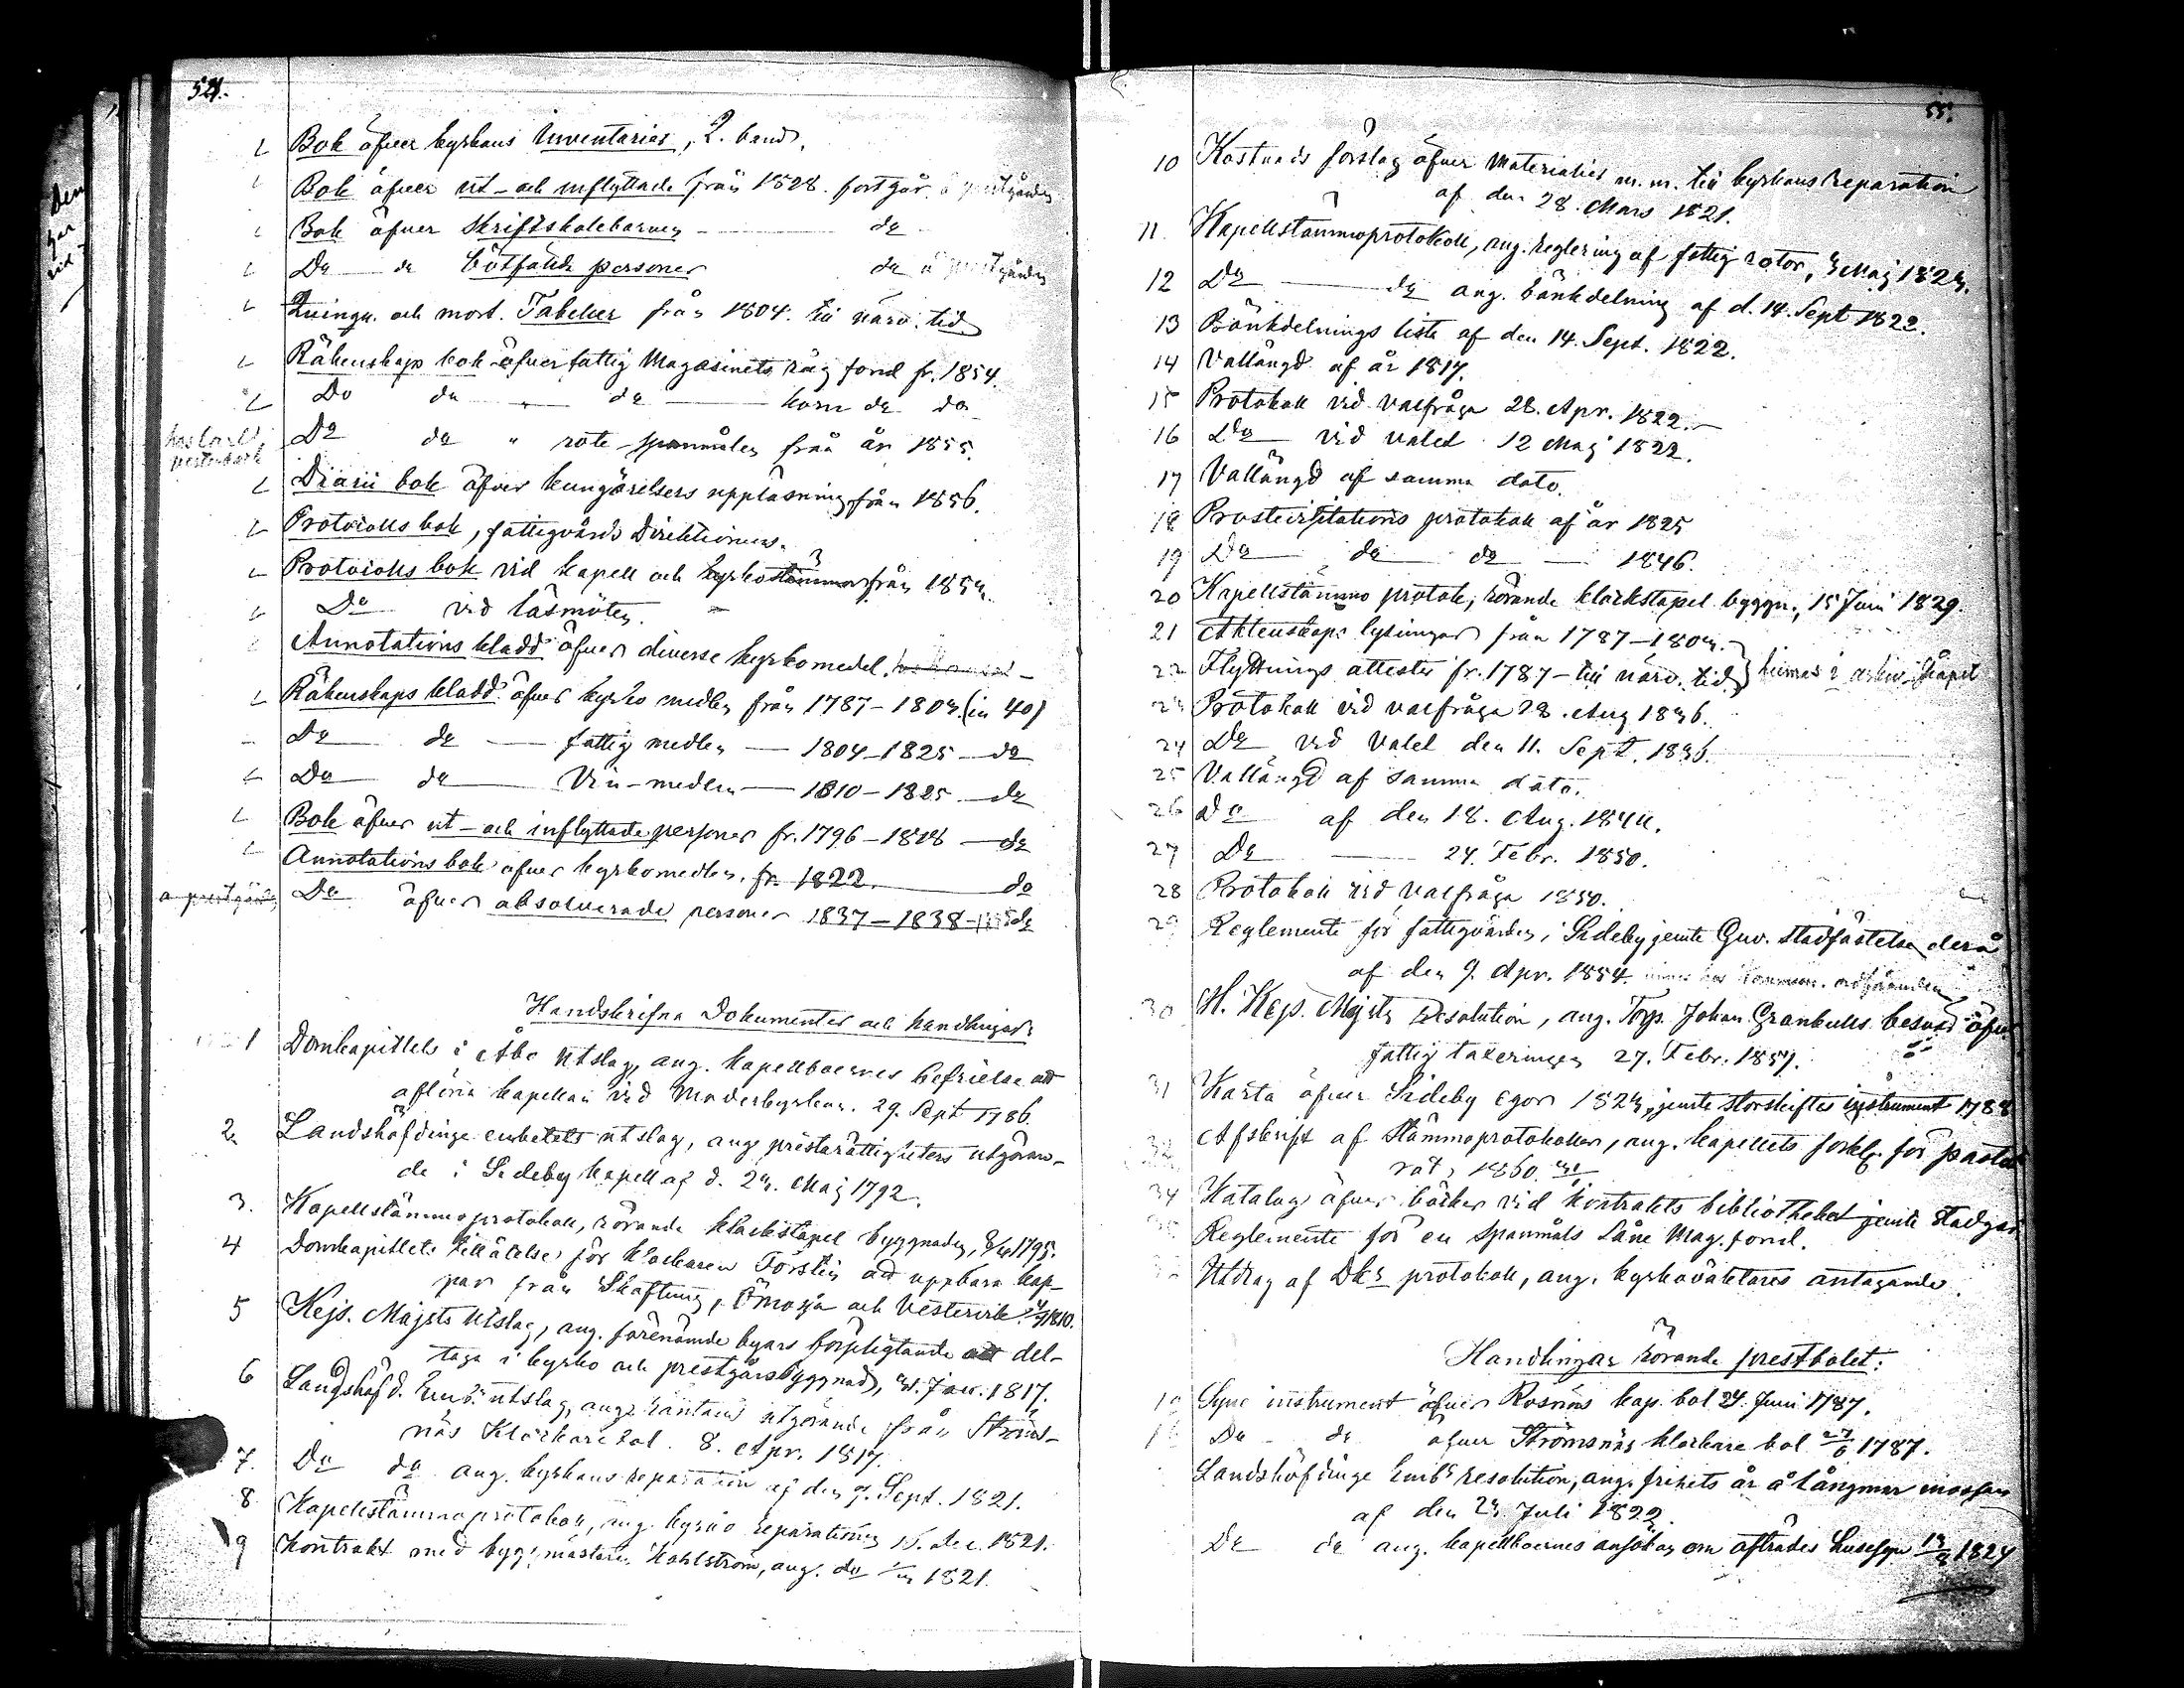 54.
Bok öfver kyrkans Inventarier, 2. band.
Bok öfver ut- och inflyttade från 1828. fortgår. å prestgården
Bok öfver Skriftskolebarnen - do
Do do bötfälde personer do å prestgården
Qvinqu. och mort. Tabeller från 1804. till närv. tid
Räkenskaps bok öfver fattig Magasinets råg fond fr. 1854.
Do do " do korn do do
Do do " rote-spanmålen från år 1855.
Diarii bok öfver kungörelsers uppläsning från 1856.
Protocolls bok, fattigvårds Direktionens.
Protocolls bok vid kapell och kyrkostämmor från 1854.
Do vid läsmöten.
Annotations bladd öfver diverse kyrkomedel.
Räkenskaps bladd öfver kyrko medlen från 1787-1803. (in 4o)
Do do fattig medlen 1804-1825 do
Do do Vin-medlen 1810-1825 do
Bok öfver ut- och inflyttade personer fr. 1796-1818 do
Annotations bok öfver kyrkomedlen. fr. 1822. do
å prestgården Do öfver absolverade personer 1837-1838 do
Handskrifna Dokumenter och handlingar.
1 Domkapitlets i Åbo Utslag, ang. kapellboernes befrielse att
aflöna kapellan vid Moderkyrkan. 29. Sept. 1786.
2. Landshöfdinge embetets utslag, ang. prästarättigheters utgöran-
de i Sideby kapell af d. 23. Maj 1792.
3. Kapellstämmoprotokoll, rörande klockstapel byggnaden, 1795.
4 Domkapitlets tillåtelse för klockaren Forstén att uppbära kap-
par från Skaftung, Ömossa och Vestervik 1810.
5 Kejs. Majsts Utslag, ang. förenämde byars förpligtande att del-
taga i kyrko och prestgårdsbyggnad, 31. Jan. 1817.
6 Landshöfd. Emb:s utslag, ang. räntans utgörande från Ströms-
näs Klockare bol. 8. Apr. 1817.
7. Do do ang. kyrkans reparation af den 7. Sept. 1821.
8 Kapellstämmoprotokoll, ang. kyrko reparationen 16. dec. 1821.
9 Kontrakt med byggmästare Kahlström, ang. do 1821.
55.
10 Kostnads förslag öfver Materialier m. m. till kyrkans reparation
af den 28. Mars 1821.
11. Kapellstämmoprotokoll, ang. reglering af fattig rotor, 3 Maj 1823.
12 Do do ang. bänkdelning af d. 14. Sept 1822.
13 Bänkdelnings lista af den 14. Sept. 1822.
14 Vallängd af år 1817.
15 Protokoll vid valfråga 28. Apr. 1822.
16 Do vid valet 12 Maj 1822.
17 Vallängd af samma dato.
18 Prostvisitations protokoll af år 1825
19 Do do do 1846.
20 Kapellstämmo protok, rörande klockstapel byggn., 15 Juni 1829.
21 Äktenskaps lysningar från 1787-1803.
22 Flyttnings attester fr. 1787 - till närv. tid } finnas i arkiv-skåpet
23 Protokoll vid valfråga 28. Aug 1836.
24 Do vid valet den 11. Sept. 1836.
25 Vallängd af samma dato.
26 Do af den 18. Aug. 1844.
27 Do 24. Febr. 1850.
28 Protokoll vid valfråga 1850.
29 Reglemente för fattigvården i Sideby jemte Guv. stadfästelse derå
af den 9. Apr. 1854. ordföranden
30 H. Kejs. Majsts Resolution, ang. Torp. Johan Grankulls besvär öfver
fattig taxeringen 27. Febr. 1857.
31 Karta öfver Sideby egor 1823, jemte storskiftes instrument 1788
32 Afskrift af Stämmoprotokoller, ang. kapellets förkl. för pasto
rat, 1860.
34 Katalog öfver böcker vid kontrakts bibliotheket jemte stadgar
Reglemente för en Spanmåls Låne Mag. fond.
Utdrag af Dks protokoll, ang. kyrkovaktares antagande.
Handlingar rörande prestbolet:
Syne instrument öfver Rosnäs kap. bol 27. Juni 1787.
Do do öfver Strömsnäs klockare bol 27/6 1787.
Landshöfdinge Emb:s resolution, ang. frihets år å Långmar mossen
af den 23 Juli 1822.
Do do ang. kapellboernes ansökan om afträdes husesyn 1824